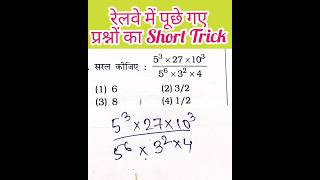 रेलवे में पूछे गए
प्रश्नों का Short Trick
. सरल कीजिए : 5³ × 27 × 10³
5⁶ × 3² × 4
(1) 6 (2) 3/2
(3) 8 (4) 1/2
5³ × 27 × 10³
5⁶ × 3² × 4